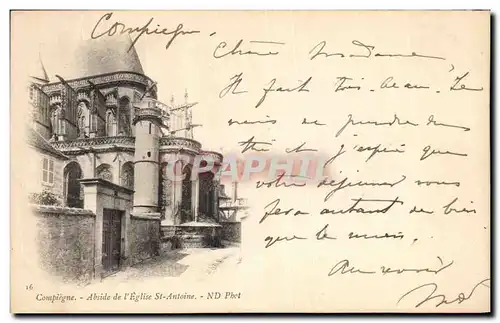 Compiègne
Chère Madame,
Il fait très beau. Je
vais en prendre
et j'espère que
votre déjeuner vous
fera autant de bien
que le mien.
Au revoir
CPA PHOTO
16
Compiègne. - Abside de l'Église St-Antoine. - ND Phot